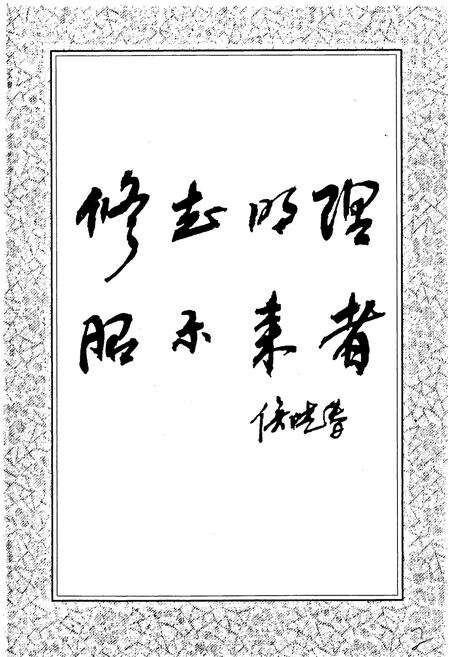 修志明理
昭示来者
侯晓春